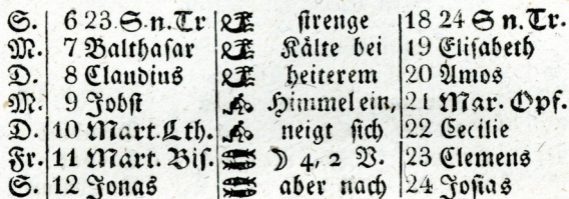 S. 6 23. S n. Tr ♑ ſtrenge 18 24 S n. Tr.
M. 7 Balthaſar ♑ Kälte bei 19 Eliſabeth
D. 8 Claudius ♑ heiterem 20 Amos
M. 9 Jobſt ♒ Himmel ein, 21 Mar. Opf.
D. 10 Mart. Lth. ♒ neigt ſich 22 Cecilie
Fr. 11 Mart. Biſ. ♓ ☽ 4, 2 V. 23 Clemens
S. 12 Jonas ♓ aber nach 24 Joſias